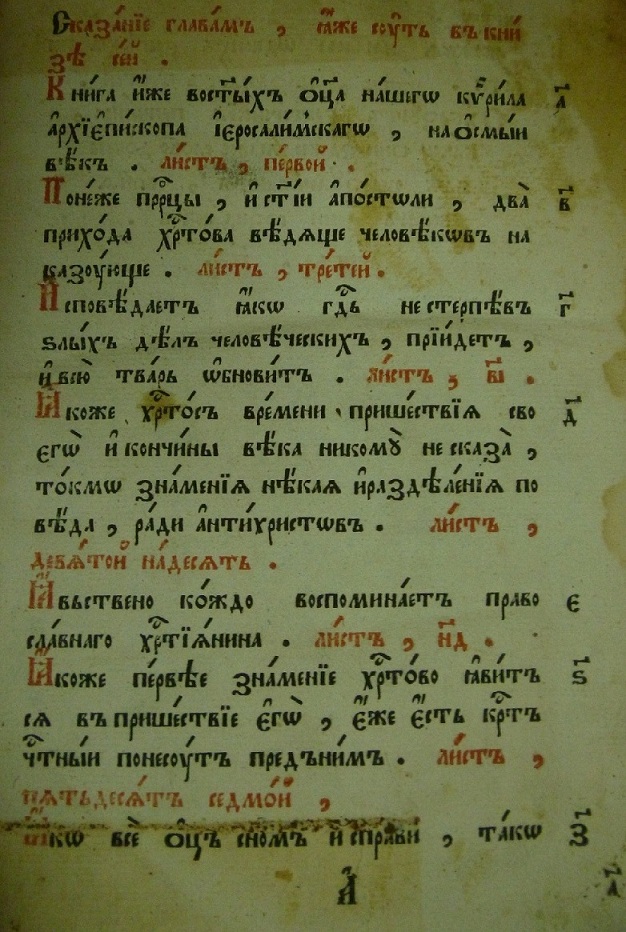 Сказа́нїе глава́мъ , ꙗ҆́же соу́ть въ кни́
зѣ се́й .
Кни́га и҆́же во ст҃ы́хъ ѻ҆ц҃а на́шегѡ кѷри́ла а҃
а҆рхїепи́скопа і҆еросали́мскагѡ , на ѻ҆смы́и
вѣ́къ . ли́стъ , пе́рвой .
Поне́же прⷪ҇ро́цы , и҆ ст҃і́и а҆по́столи , два̀ в҃
прихо́да хрⷭ҇то́ва вѣ́дѧще человѣ́кѡвъ на
казоу́юще . ли́стъ , тре́тей .
И҆сповѣ́даетъ ꙗ҆́кѡ гдⷭ҇ь не стерпѣ́въ г҃
ѕлы́хъ дѣ́лъ человѣ́ческихъ , прїи́детъ ,
и҆ всю̀ тва́рь ѡ҆бнови́тъ . ли́стъ , в҃і .
Ꙗ҆́коже хрⷭ҇то́съ вре́мени прише́ствїѧ сво д҃
егѡ̀ и҆ кончи́ны вѣ́ка никомꙋ̀ не сказа̀ ,
то́кмѡ зна́менїѧ нѣ́каѧ и҆ раздѣле́нїѧ по
вѣ́да , ра́ди а҆нти́христѡвъ . ли́стъ ,
девѧ́той на́десѧть .
Ꙗ҆́вьствено ко́ждо воспомина́етъ право є҃
сла́внаго хрⷭ҇тїѧ́нина . ли́стъ , н҃д .
Ꙗ҆́коже пе́рвѣе зна́менїе хрⷭ҇то́во ꙗ҆́витъ ѕ҃
сѧ въ прише́ствїе є҆гѡ̀ , є҆́же є҆́сть крⷭ҇тъ
чⷭ҇тны́и понесоу́тъ пред̾ ни́мъ . ли́стъ ,
пѧтьдесѧ́тъ седмо́й ,
Ꙗ҆́кѡ всѐ ѻ҆ц҃ъ сн҃омъ и҆спра́ви , та́кѡ з҃
А҃